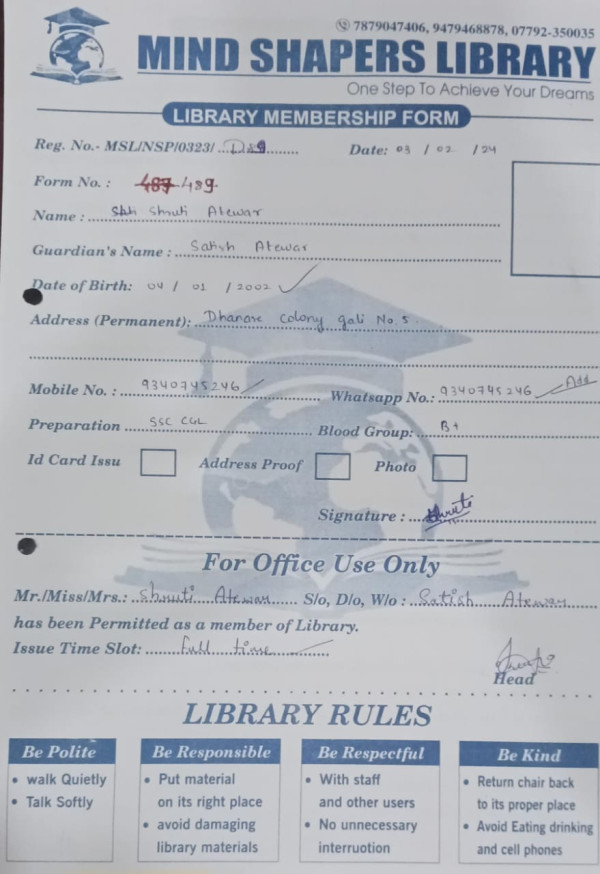 7879047406, 9479468878, 07792-350035
MIND SHAPERS LIBRARY
One Step To Achieve Your Dreams
LIBRARY MEMBERSHIP FORM
Reg. No.- MSL/NSP/0323/ Date: 03 / 02 / 24
Form No. : 487 489
Name : Shruti Atewar
Guardian's Name : Satish Atewar
Date of Birth: 04 / 01 / 2002
Address (Permanent): Dhanore Colony gali No. 5
Mobile No. : 9340745246 Whatsapp No.: 9340745246 Add
Preparation SSC CGL Blood Group: B+
Id Card Issu Address Proof Photo
Signature : Shruti
For Office Use Only
Mr./Miss/Mrs.: Shruti Atewar S/o, D/o, W/o : Satish Atewar
has been Permitted as a member of Library.
Issue Time Slot: full time
Head
LIBRARY RULES
Be Polite
• walk Quietly
• Talk Softly
Be Responsible
• Put material
on its right place
• avoid damaging
library materials
Be Respectful
• With staff
and other users
• No unnecessary
interruotion
Be Kind
• Return chair back
to its proper place
• Avoid Eating drinking
and cell phones